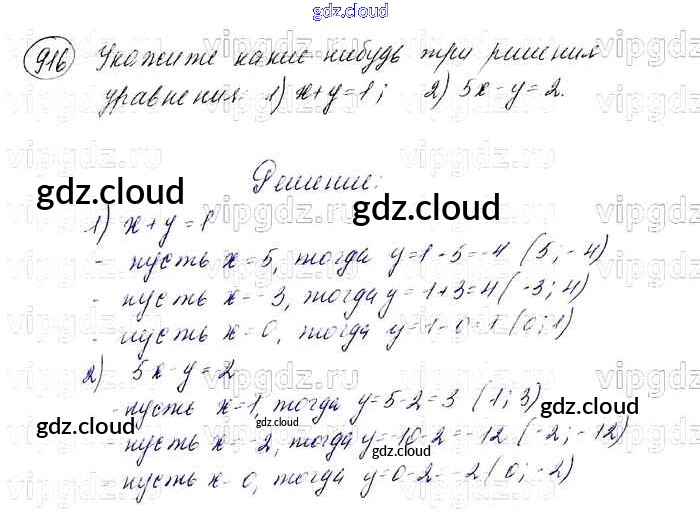 gdz.cloud
916 Укажите какие-нибудь три решения
уравнения: 1) x+y=1; 2) 5x-y=2.
Решение:
gdz.cloud
gdz.cloud
1) x+y=1
- пусть x=5, тогда y=1-5=-4 (5;-4)
- пусть x=-3, тогда y=1+3=4 (-3; 4)
- пусть x=0, тогда y=1-0=1 (0;1)
2) 5x-y=2
- пусть x=1, тогда y=5-2=3 (1; 3)
gdz.cloud
gdz.cloud
gdz.cloud
- пусть x=-2, тогда y=-10-2=-12 (-2;-12)
- пусть x=0, тогда y=0-2=-2 (0;-2)
vipgdz.ru